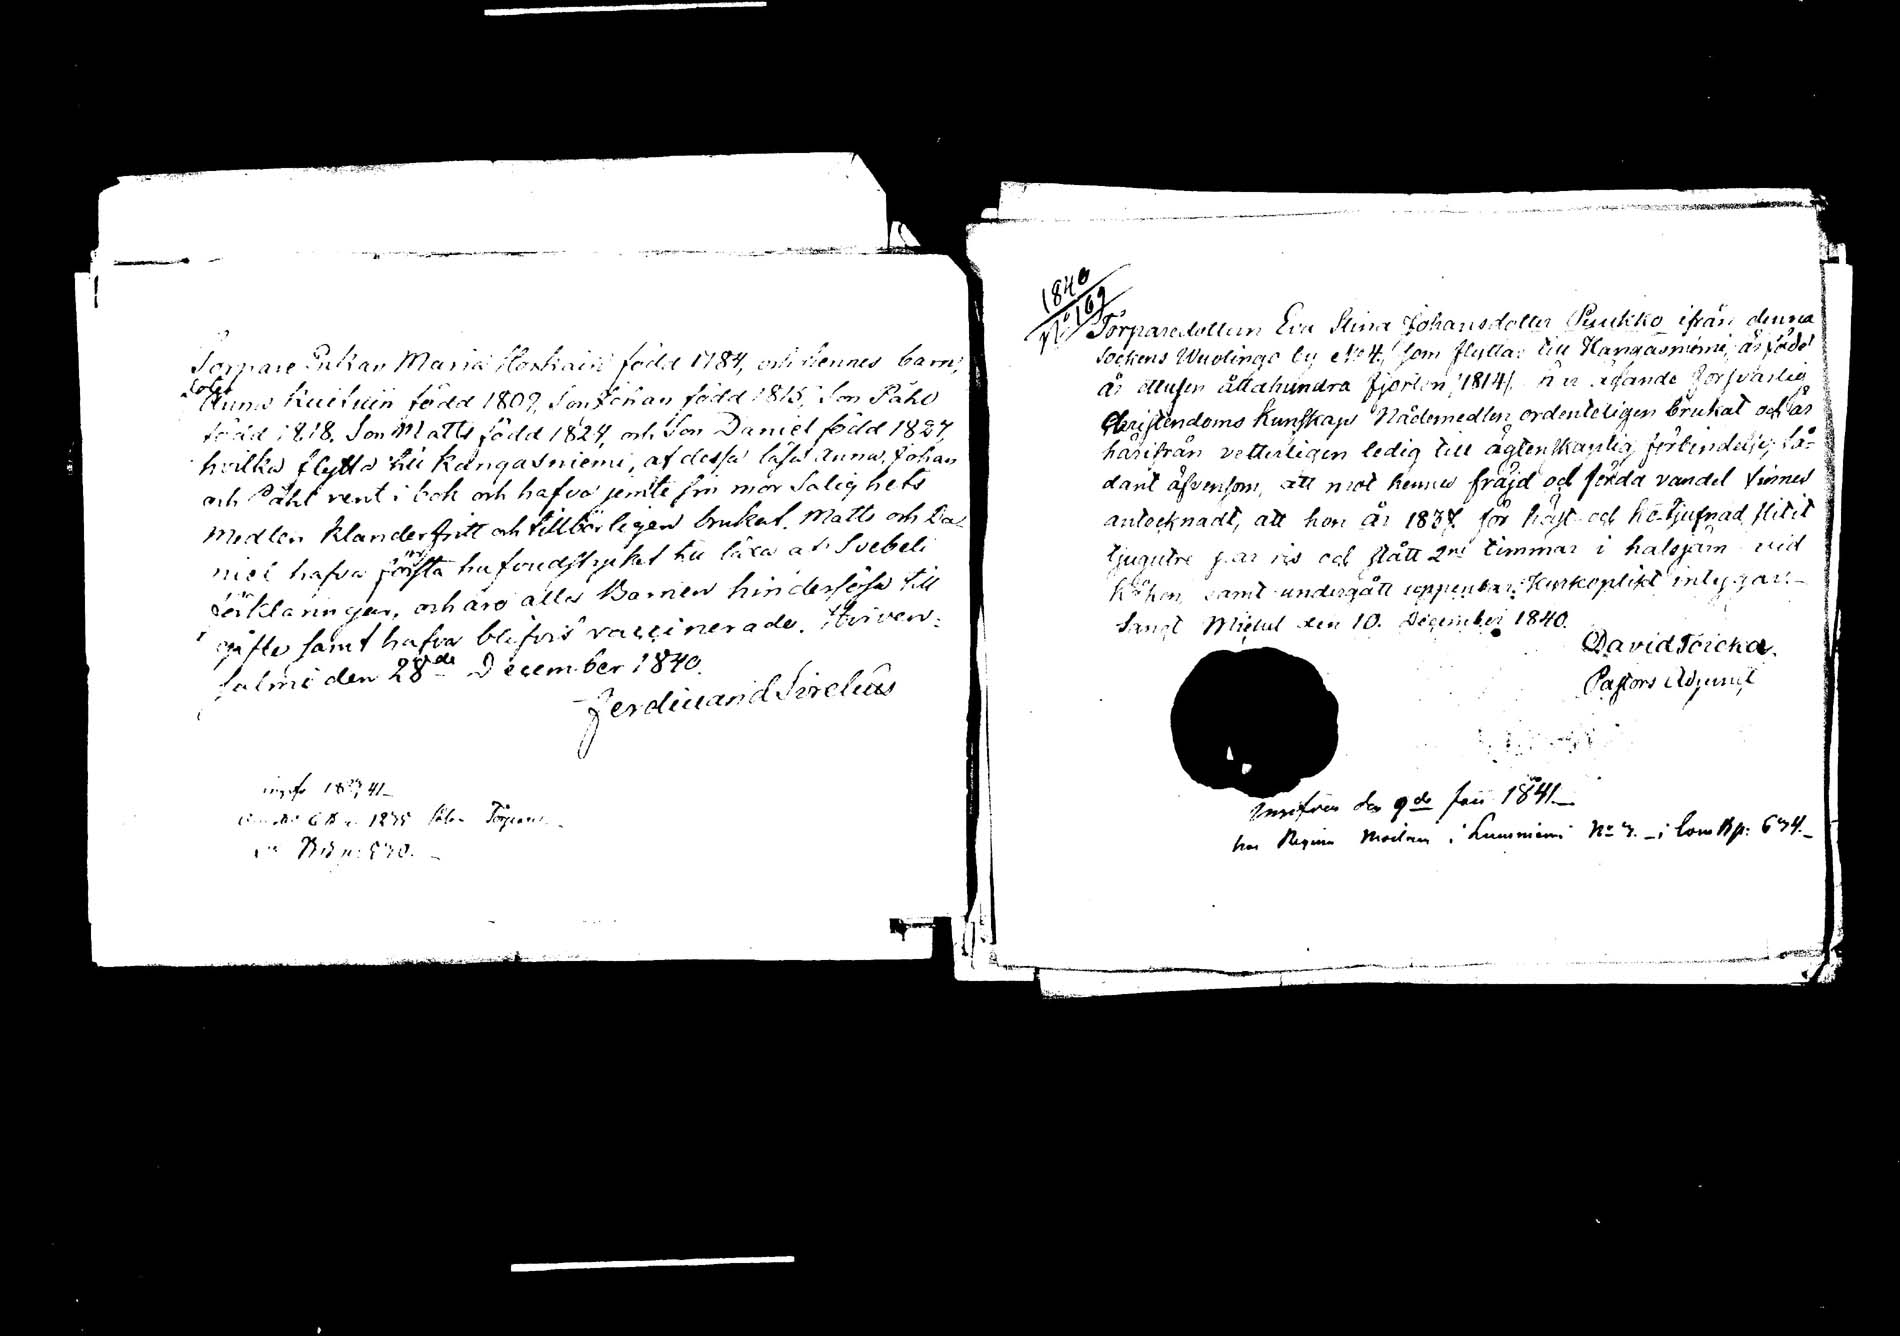 Torpare Enkan Maria Horkain född 1784, och hennes barn,
doter
Anna Kuituin född 1809, Son Johan född 1815, Son Påhl
född 1818. Son Matts född 1824, och Son Daniel född 1827,
hvilka flytta till Kangasniemi, af dessa läsa Anna, Johan
och Påhl rent i bok och hafva jemte sin mor Salighets
Medlen klanderfritt och tillbörligen brukat. Matts och Da-
niel hafva första hufvudstycket till läxa af Svebeli
förklaringen, och äro alla Barnen hinderslösa till
gifte samt hafva blifvit vaccinerade. Hirven-
salmi den 28de December 1840.
Ferdinand Sirelius
1841
1275
1840
No 169
Torparedottern Eva Stina Johansdotter Puukko ifrån denna
Sockens Wuolingo by No 4, som flyttar till Kangasniemi, är född
år adertonhundra fjorton /1814/. är ägande försvarlig
Christendoms Kunskap Nådemedlen ordenteligen brukat och är
härifrån vetterligen ledig till ägtenskaplig förbindelse; så-
dant äfvensom, att mot hennes fräjd och förda vandel finnes
antecknadt, att hon år 1837 för häst och ko tjufnad slitit
tjugutre par ris och stått 2ne timmar i halsjärn vid
kåken samt undergått uppenbar Kyrkoplikt intygar.
Sanct Michel den 10. December 1840.
David Poicka.
Pastors Adjunct
den 9de Juni 1841
hos Regina i Luusniemi No 7. i Com B p: 674.